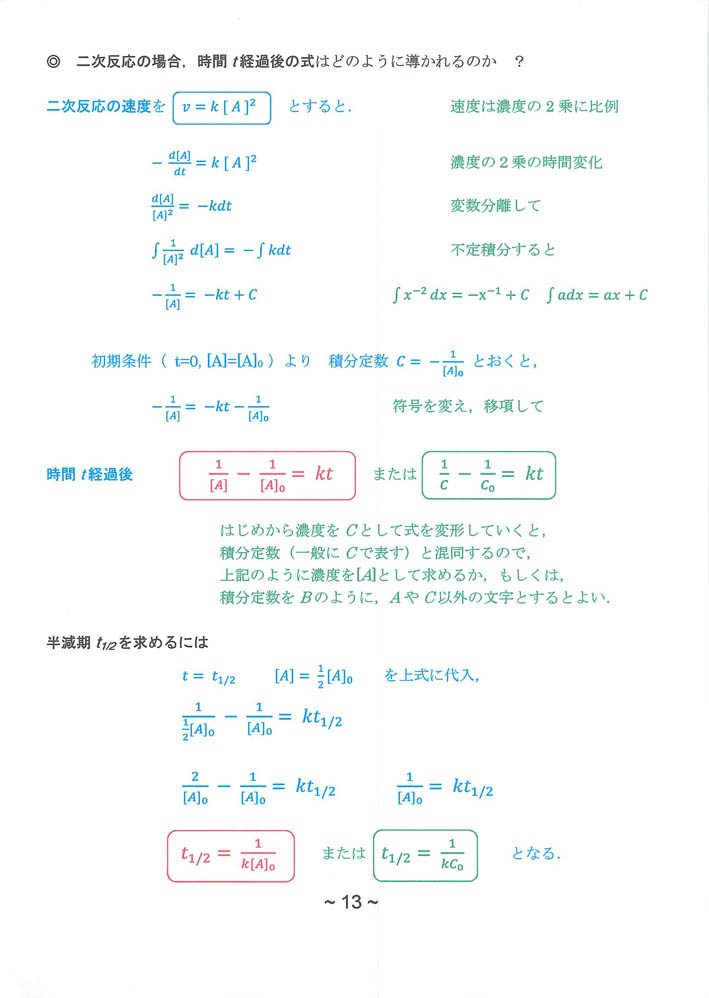 ◎ 二次反応の場合，時間 t 経過後の式はどのように導かれるのか ？
二次反応の速度を v = k [ A ]² とすると． 速度は濃度の 2 乗に比例
− d[A]/dt = k [ A ]² 濃度の 2 乗の時間変化
d[A]/[A]² = −kdt 変数分離して
∫ 1/[A]² d[A] = −∫ kdt 不定積分すると
− 1/[A] = −kt + C ∫ x⁻² dx = −x⁻¹ + C ∫ adx = ax + C
初期条件（ t=0, [A]=[A]₀ ）より 積分定数 C = − 1/[A]₀ とおくと，
− 1/[A] = −kt − 1/[A]₀ 符号を変え，移項して
時間 t 経過後 1/[A] − 1/[A]₀ = kt または 1/C − 1/C₀ = kt
はじめから濃度を C として式を変形していくと，
積分定数（一般に C で表す）と混同するので，
上記のように濃度を[A]として求めるか，もしくは，
積分定数を B のように，A や C 以外の文字とするとよい．
半減期 t1/2 を求めるには
t = t1/2 [A] = 1/2 [A]₀ を上式に代入，
1/(1/2 [A]₀) − 1/[A]₀ = kt1/2
2/[A]₀ − 1/[A]₀ = kt1/2 1/[A]₀ = kt1/2
t1/2 = 1/k[A]₀ または t1/2 = 1/kC₀ となる．
~ 13 ~